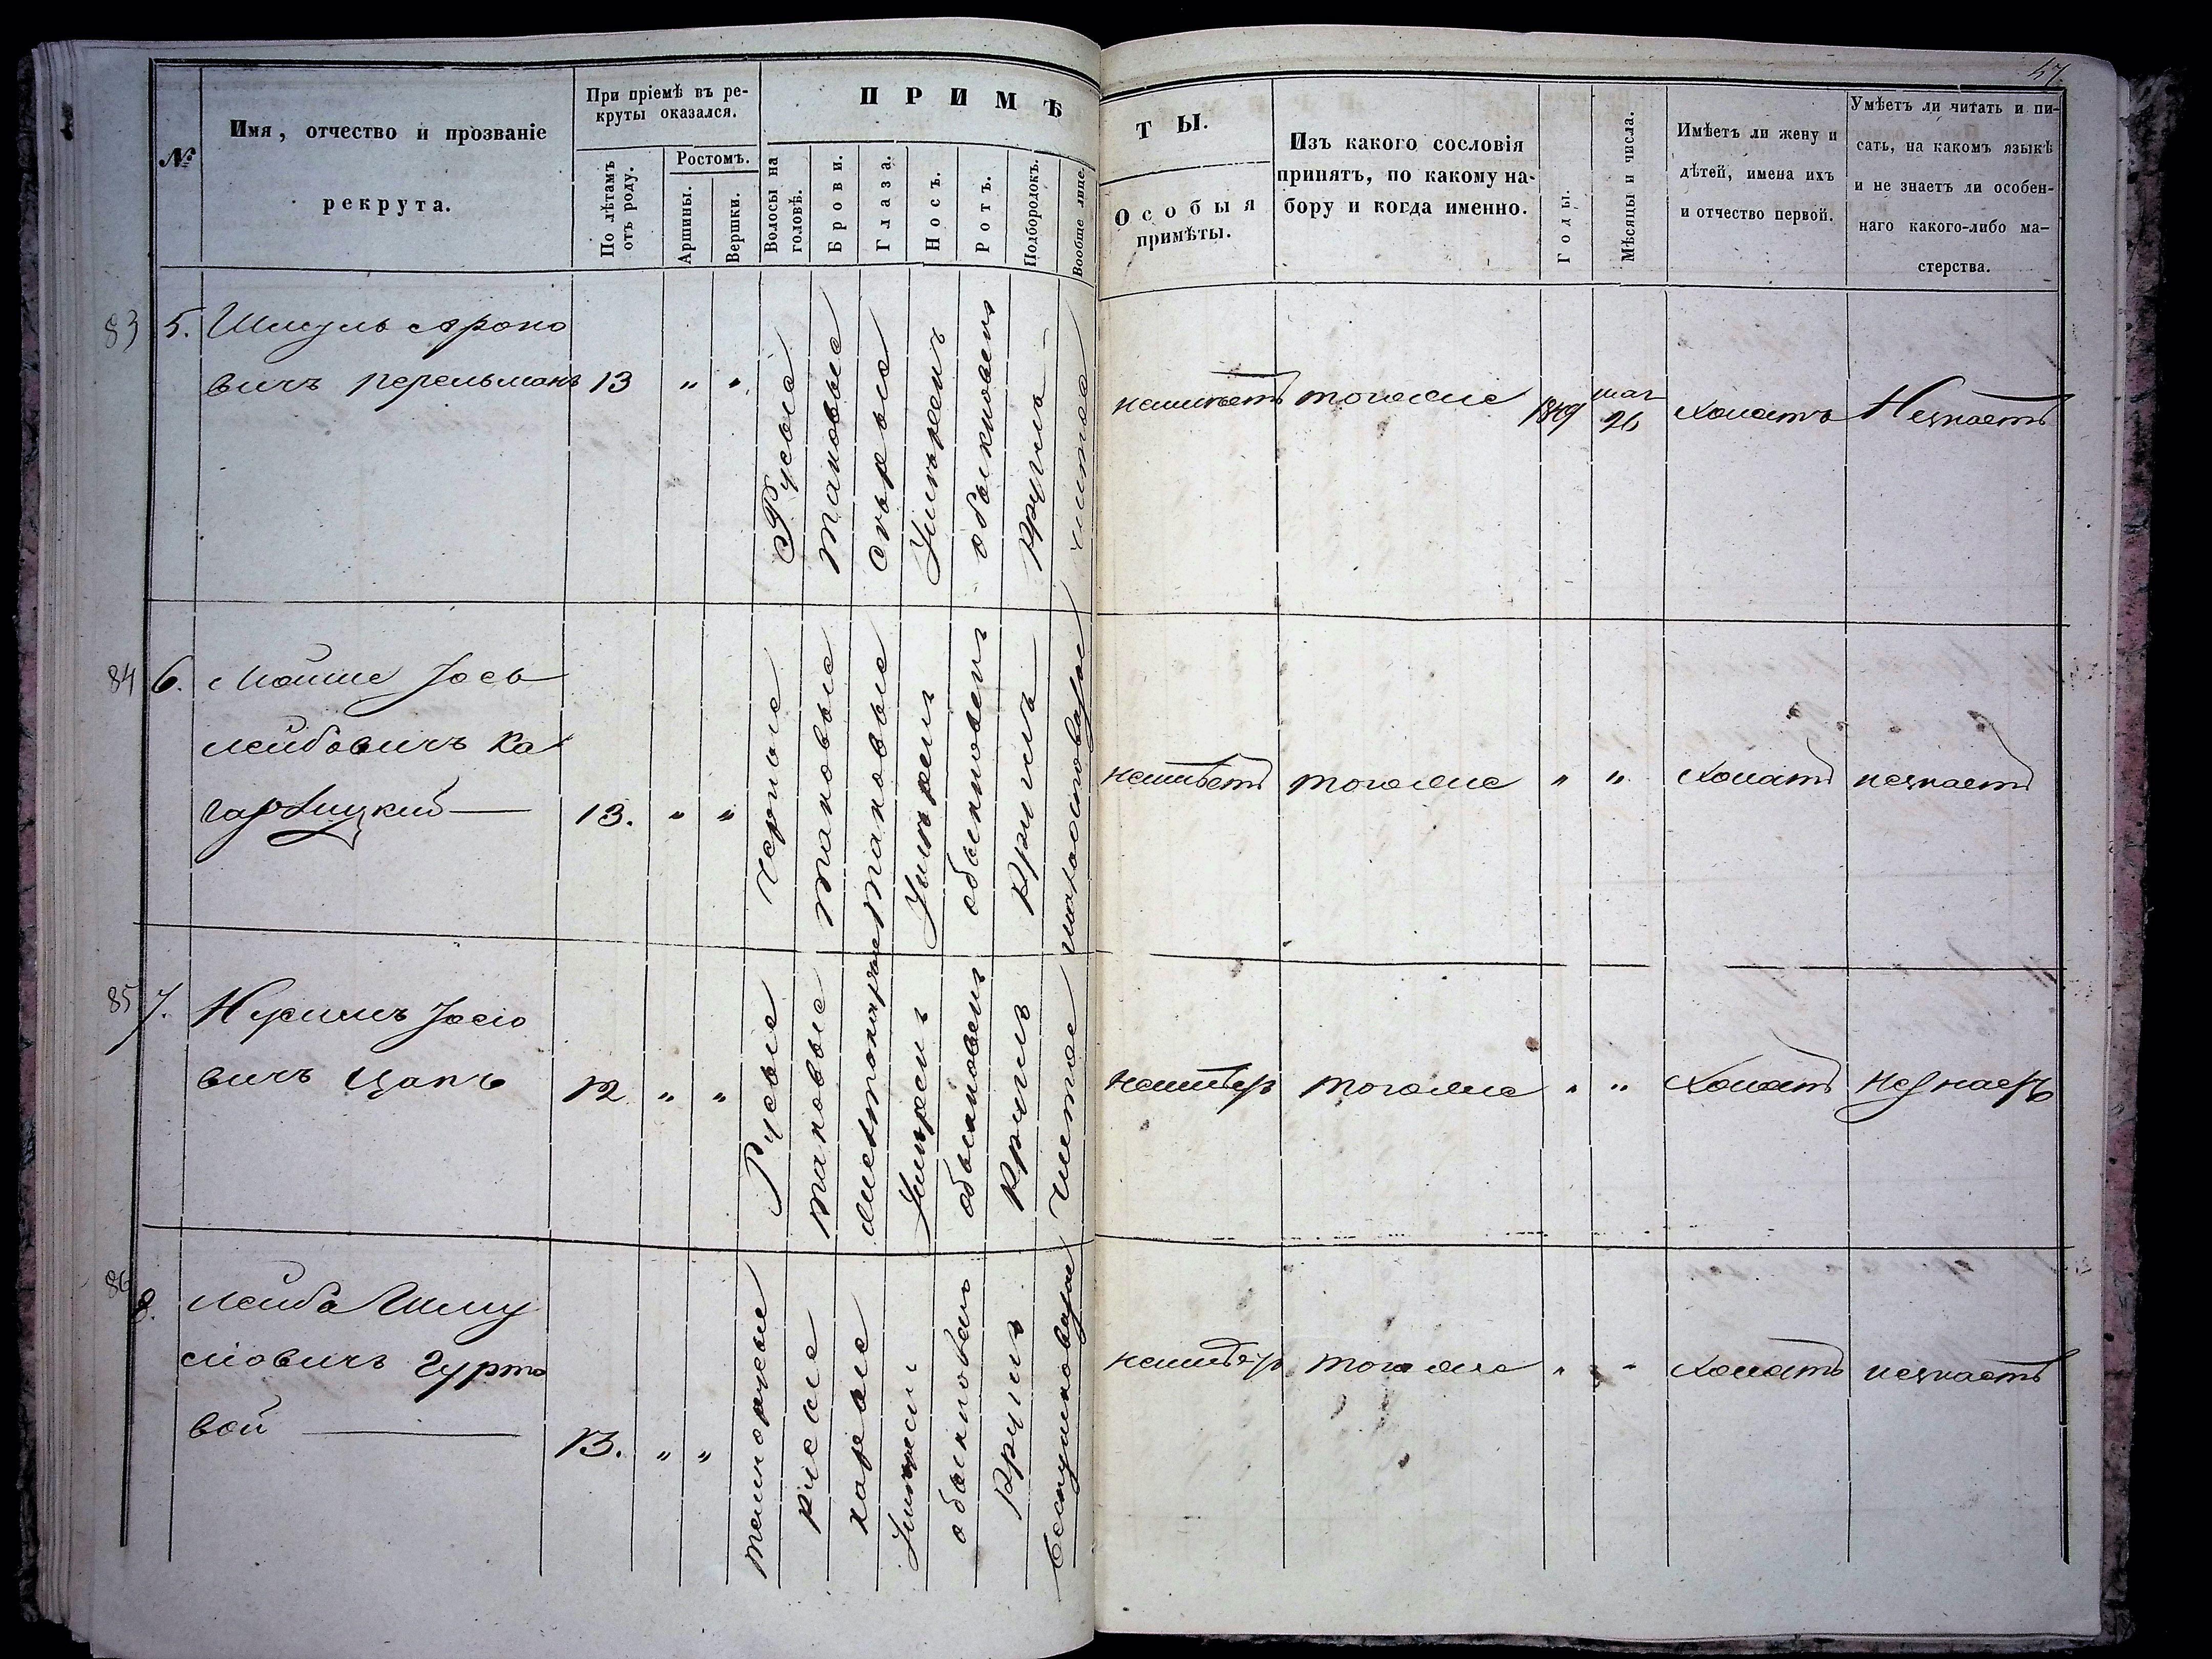 47
№
Имя, отчество и прозваніе
рекрута.
При пріемѣ въ ре-
круты оказался.
По лѣтамъ
отъ роду.
Ростомъ.
Аршины.
Вершки.
ПРИМѢ
Волосы на
головѣ.
Брови.
Глаза.
Носъ.
Ротъ.
Подбородокъ.
Вообще лице.
ТЫ.
Особыя
примѣты.
Изъ какого сословія
принятъ, по какому на-
бору и когда именно.
Годы.
Мѣсяцы и числа.
Имѣетъ ли жену и
дѣтей, имена ихъ
и отчество первой.
Умѣетъ ли читать и пи-
сать, на какомъ языкѣ
и не знаетъ ли особен-
наго какого-либо ма-
стерства.
83 5. Шмуль Ароно
вичъ Перельманъ 13 " "
Русые
таковые
сѣрые
Умѣренъ
обыкновенъ
Круглъ
чистое
неимѣетъ тогоже 1849 мая 26 холостъ Незнаетъ
84 6. Мойше Іось
лейбовичъ Ка
13. " "
Черные
таковые
таковые
Умѣренъ
обыкновенъ
Круглъ
неимѣетъ тогоже " " холостъ незнаетъ
85 7. Нухимъ Іосіо
вичъ Цапъ 12 " "
Русые
таковые
Умѣренъ
обыкновенъ
Круглъ
чистое
неимѣетъ тогоже " " холостъ незнаетъ
86 8. Лейба Шму
ліовичъ Гурто
вой 13. " "
темнорусые
русые
карые
Умѣренъ
обыкновенъ
Круглъ
неимѣетъ тогоже " " холостъ незнаетъ